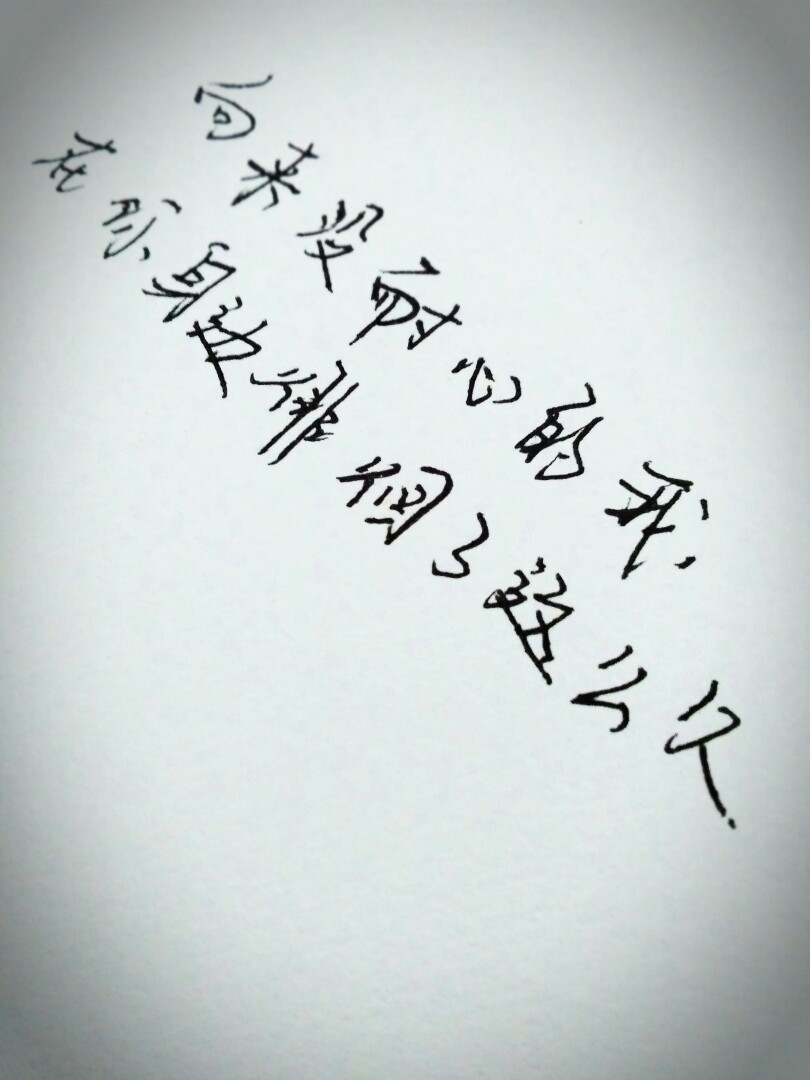 向来没耐心的我
在你身边徘徊了这么久